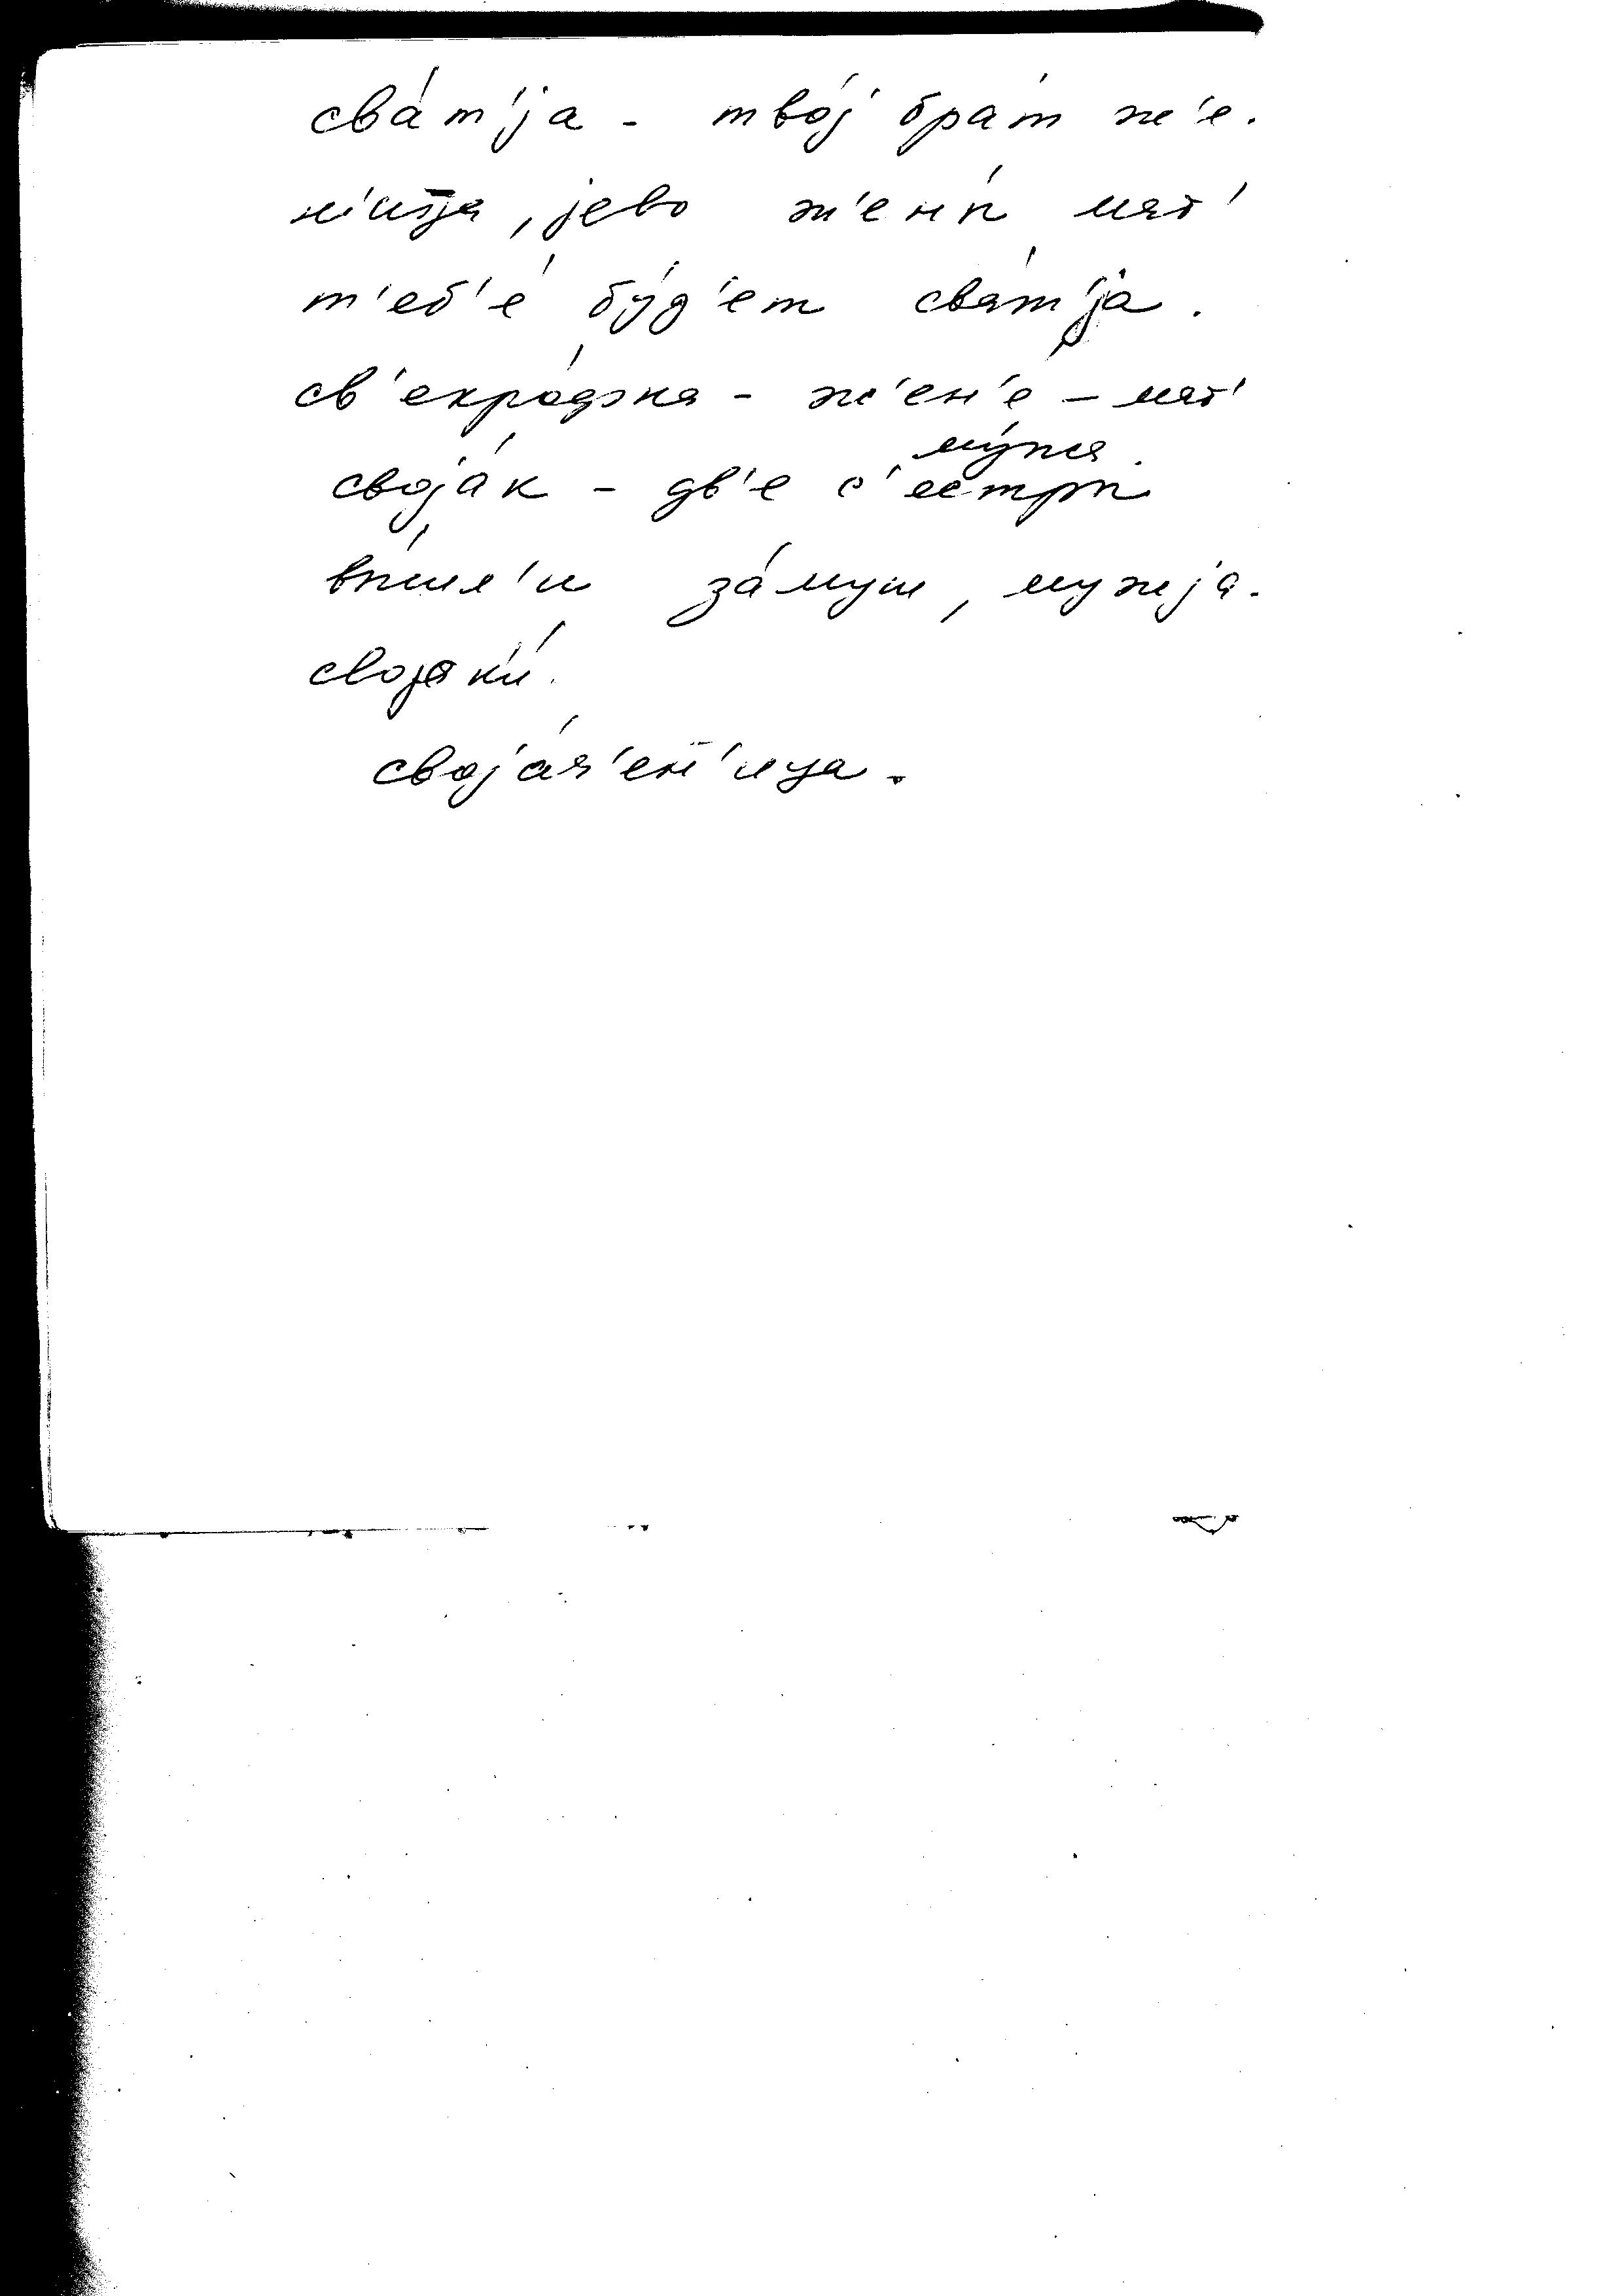 сва́т'jа - тво́j бра́т ж'е-
н'и́цца, jево ж'ены́ мат'
т'еб'е́ бу́д'ет сва́т'jа.
св'екро́вка - ж'ен'е́ - мат'
му́жа.
своjа́к - дв'е с'естры́
вы́шл'и за́муш, мужjа-
своjак'и́.
своjа́ч'ен'ица.